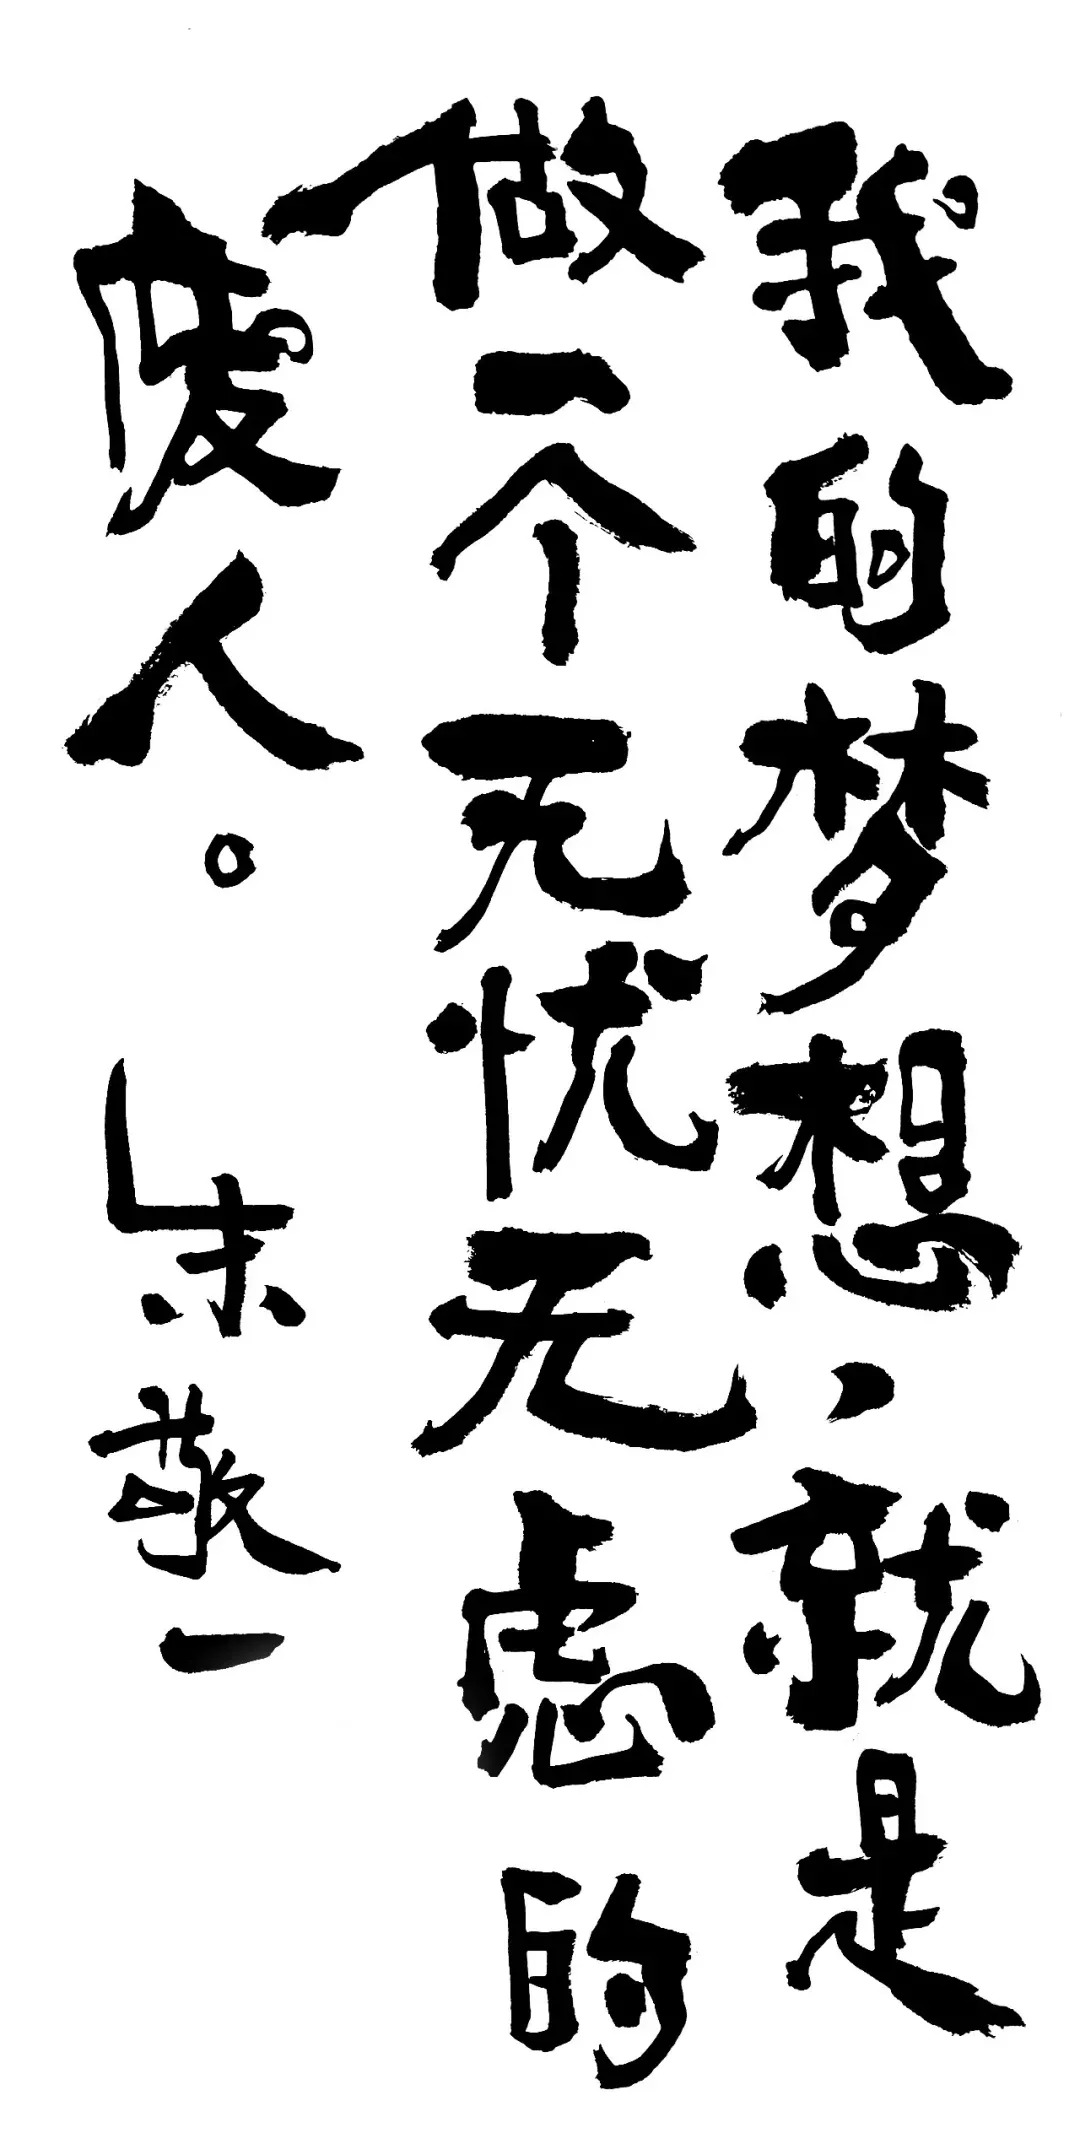 我的梦想，就是
做一个无忧无虑的
废人。
朱敬一